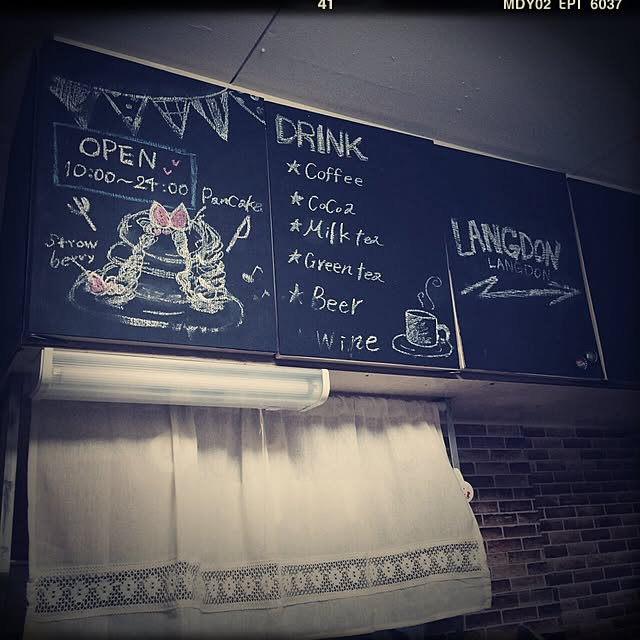 41
MDY02 EPT 6037
OPEN
10:00~24:00
PanCake
Straw
berry
DRINK
★Coffee
★CoCoa
★Milk tea
★Green tea
★Beer
Wine
LANGDON
LANGDON